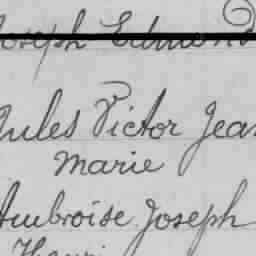 Joseph Edmond
Jules Victor Jean
Marie
Ambroise Joseph
Henri